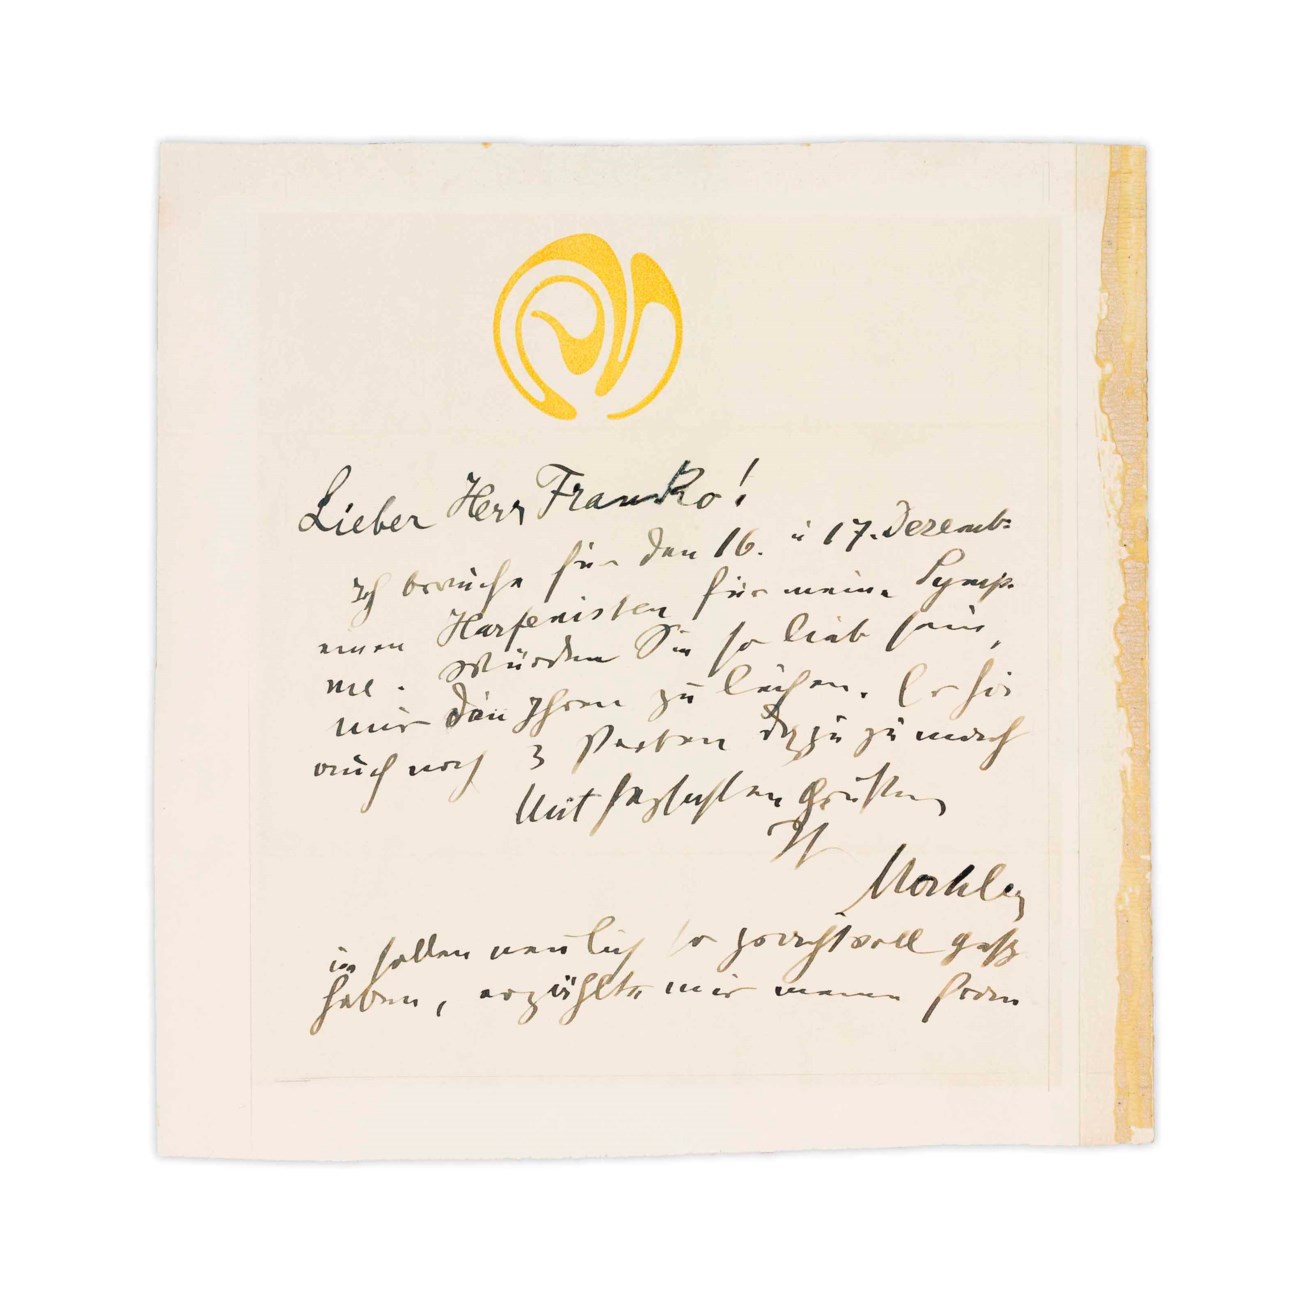 Lieber Herr Franko!
Ich brauche für den 16. u 17. Dezemb.
einen Harfenisten für meine Symp.
nie. Würden Sie so lieb sein,
mir den Ihren zu leihen. Er hat
auch noch 3 Proben dazu zu mach
Mit herzlichsten Grüßen
Ihr
Mahler
Sie sollen neulich so prachtvoll gesp
haben, erzählte mir meine Frau